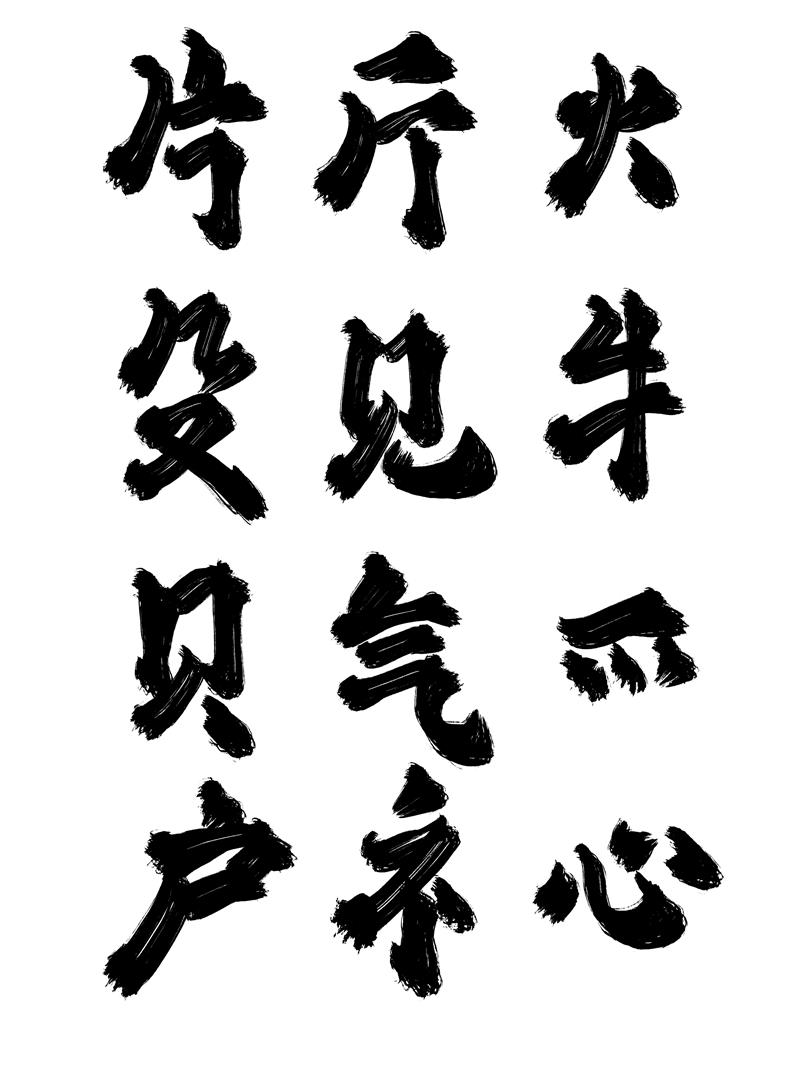 片斤火
殳见牛
贝气爫
户礻心